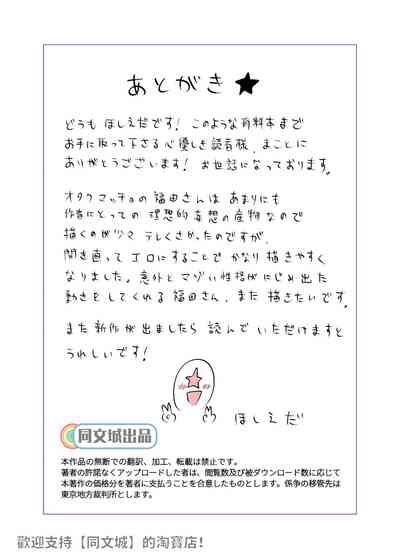 あとがき★
どうも ほしえだです! このような有料本まで
お手に取って下さる心優しき読者様、まことに
ありがとうございます! お世話になっております。
オタクマッチョの福田さんは あまりにも
作者にとっての 理想的妄想の産物なので
描くのがツマ テレくさかったのですが、
開き直って エロにすることで かなり描きやすく
なりました。意外とマゾい性格がにじみ出た
動きをしてくれる福田さん、また描きたいです。
また新作が出ましたら 読んで いただけますと
うれしいです!
ほしえだ
同文城出品
本作品の無断での翻訳、加工、転載は禁止です。
著者の許諾なくアップロードした者は、閲覧数及び被ダウンロード数に応じて
本著作の価格分を著者に支払うことを合意したものとします。係争の移管先は
東京地方裁判所とします。
歡迎支持【同文城】的淘寶店!